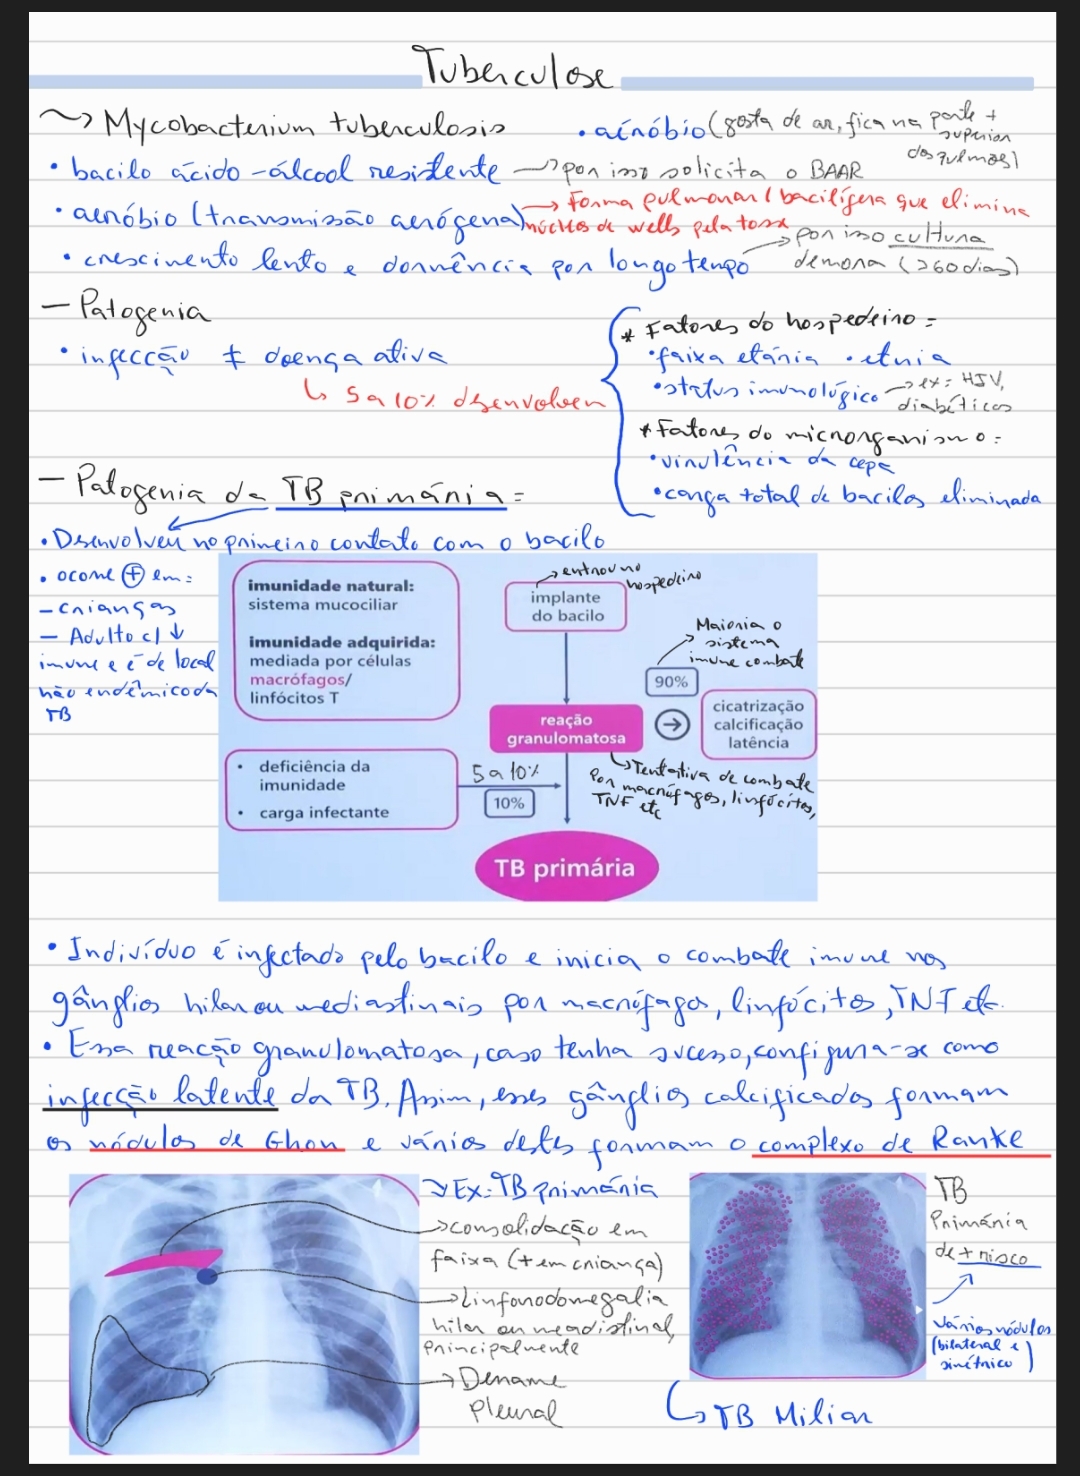 Tuberculose
~> Mycobacterium tuberculosis
• aéróbio (gosta de ar, fica na parte + superior dos pulmões)
• bacilo ácido-álcool resistente → por isso solicita o BAAR
• aeróbio (transmissão aerógena) → Forma pulmonar (bacilífera que elimina
núcleos de wells pela tosse
• crescimento lento e dormência por longo tempo → por isso cultura
demora (>60 dias)
— Patogenia
• infecção ≠ doença ativa
↳ 5 a 10% desenvolvem
* Fatores do hospedeiro =
• faixa etária • etnia
• status imunológico → ex: HIV,
diabéticos
* Fatores do microrganismo =
• virulência da cepa
• carga total de bacilos eliminada
— Patogenia da TB primária =
• Desenvolveu no primeiro contato com o bacilo
• ocorre ⊕ em:
— crianças
— Adulto c/ ↓
imune e é de local
não endêmico da
TB
imunidade natural:
sistema mucociliar
imunidade adquirida:
mediada por células
macrófagos/
linfócitos T
→ entrou no
hospedeiro
implante
do bacilo
Maioria o
sistema
imune combate
90%
reação
granulomatosa
→
cicatrização
calcificação
latência
↳ Tentativa de combate
Por macrófagos, linfócitos,
TNF etc
• deficiência da
imunidade
• carga infectante
5 a 10%
10%
TB primária
• Indivíduo é infectado pelo bacilo e inicia o combate imune nos
gânglios hilar ou mediastinais por macrófagos, linfócitos, TNF etc.
• Essa reação granulomatosa, caso tenha sucesso, configura-se como
infecção latente da TB. Assim, esses gânglios calcificados formam
os nódulos de Ghon e vários destes formam o complexo de Ranke
Ex: TB primária
→ consolidação em
faixa (+ em criança)
→ linfonodomegalia
hilar ou meadistinal,
Principalmente
→ Derrame
pleural
TB
Primária
de + risco
Vários nódulos
(bilateral e
simétrico)
↳ TB Miliar